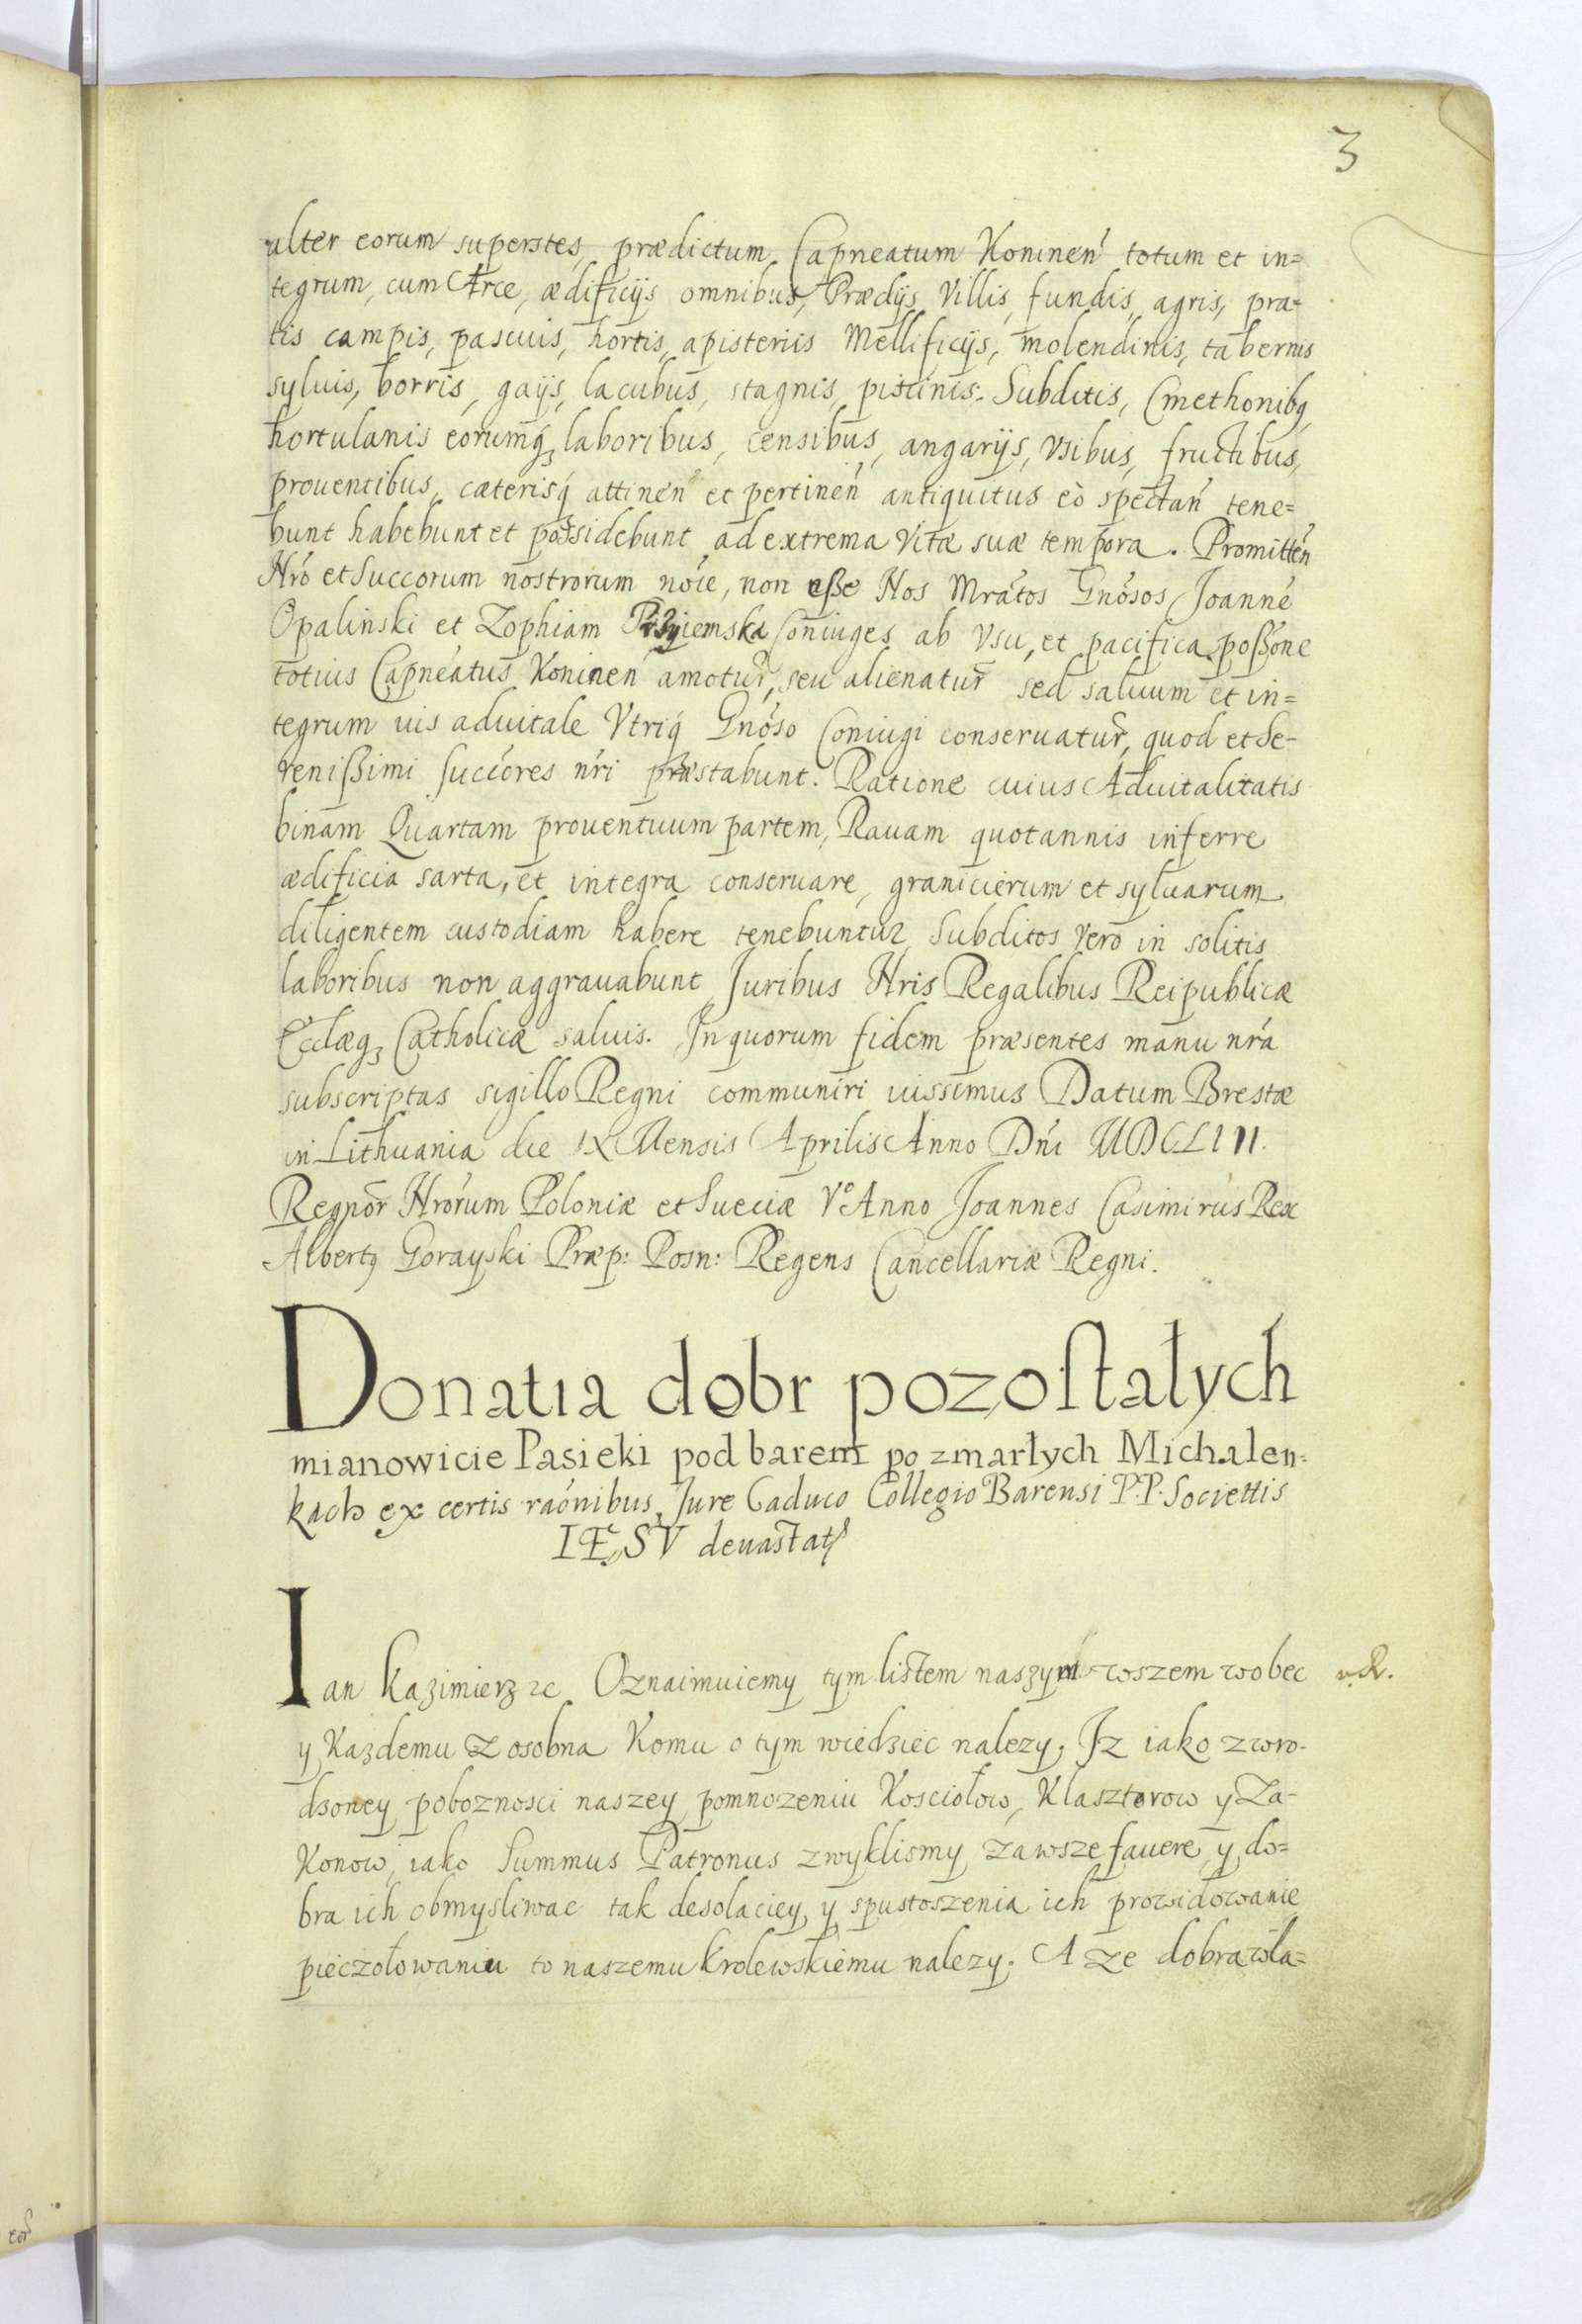 3
alter eorum superstes, prædictum Capneatum Koninen̄ totum et in=
tegrum, cum Arce, ædificijs omnibus, Prædijs, Villis, fundis, agris, pra=
tis campis, pascuis, hortis, apisteriis Mellificijs, molendinis, tabernis
syluis, borris, gaijs, lacubus, stagnis, piscinis. Subditis, Cmethonibq
hortulanis eorumq́ laboribus, censibus, angarijs, Vsibus, fructibus,
prouentibus, cæterisq́ attinen̄ et pertinen̄ antiquitus eò spectan̄ tene=
bunt habebunt et possidebunt ad extrema Vitæ suæ tempora. Promitten̄
Nr̄o et Succorum nostrorum nōie, non eße Nos Mrātos Gnōsos Joannē
Opalinski et Zophiam Przyiemska Coniuges ab Vsu, et pacifica poßone
totius Capneātus Koninen̄ amotur̄, seu alienatur̄ sed saluum et in=
tegrum ius aduitale Vtriq́ Gnōso Coniugi conseruatur̄, quod et Se-
renißimi succōres nr̄i præstabunt. Ratione cuius Aduitalitatis
binam Quartam prouentuum partem, Rauam quotannis inferre
ædificia sarta, et integra conseruare, granicierum et syluarum
diligentem custodiam habere tenebuntur Subditos Vero in solitis
laboribus non aggrauabunt Juribus Nris Regalibus Reipublicæ
Ecclæq Catholicæ saluis. In quorum fidem præsentes manu nr̄a
subscriptas sigillo Regni communiri iussimus Datum Brestæ
in Lithuania die IX Mensis Aprilis Anno Dn̄i MDCLIII.
Regnor̄ Nrōrum Poloniæ et Sueciæ Vº Anno Joannes Casimirus Rex
Albertq Gorayski Præp: Posn: Regens Cancellariæ Regni.
Donatia dobr pozostałych
mianowicie Pasieki pod barem po zmarłych Michalen=
kach ex certis raōnibus, Jure Caduco Collegio Barensi P.P. Societtis
IESV deuastat
Ian Kazimierz etc Oznaimuiemy tym listem naszym wszem wobec
y Kazdemu z osobna Komu o tym wiedziec nalezy. Jz iako zwro-
dzoney poboznosci naszey pomnozeniu Kosciołow, Klasztorow y Za-
Konow, iako Summus Patronus zwyklismy zawsze fauere y do=
bra ich obmysliwac tak desolaciey, y spustoszenia ich prowidowanie
pieczołowaniu to naszemu krolewskiemu nalezy. A ze dobra wła=